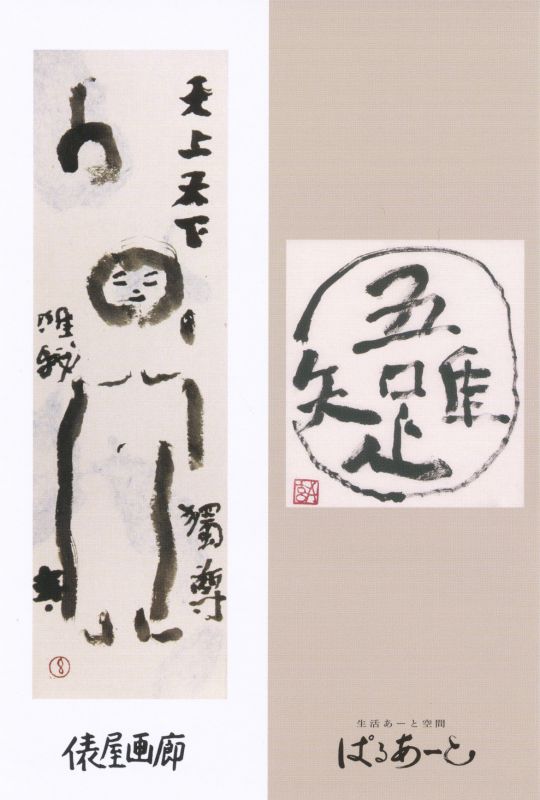 天上天下
唯我
獨尊
五
隹
疋
矢
口
俵屋画廊
生活あーと空間
ぱるあーと